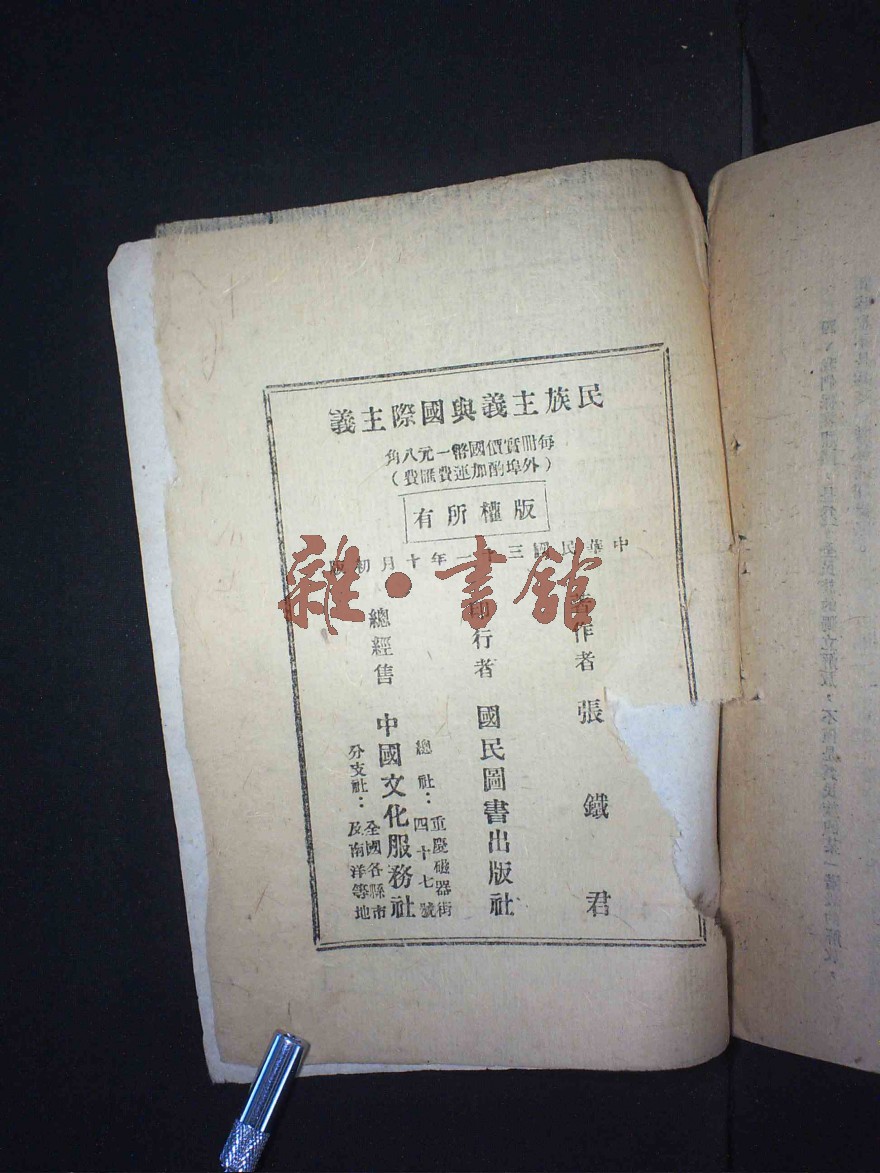 民族主義與國際主義
每冊實價國幣一元八角
（外埠酌加運費匯費）
版權所有
中華民國三十一年十月初版
著作者 張鐵君
印行者 國民圖書出版社
總經售 中國文化服務社
總社：重慶磁器街四十七號
分支社：全國各縣市及南洋等地
雜·書館